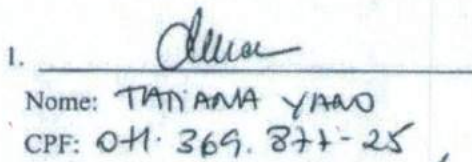 1.
Nome: TATIANA YANO
CPF: 071.369.877-25